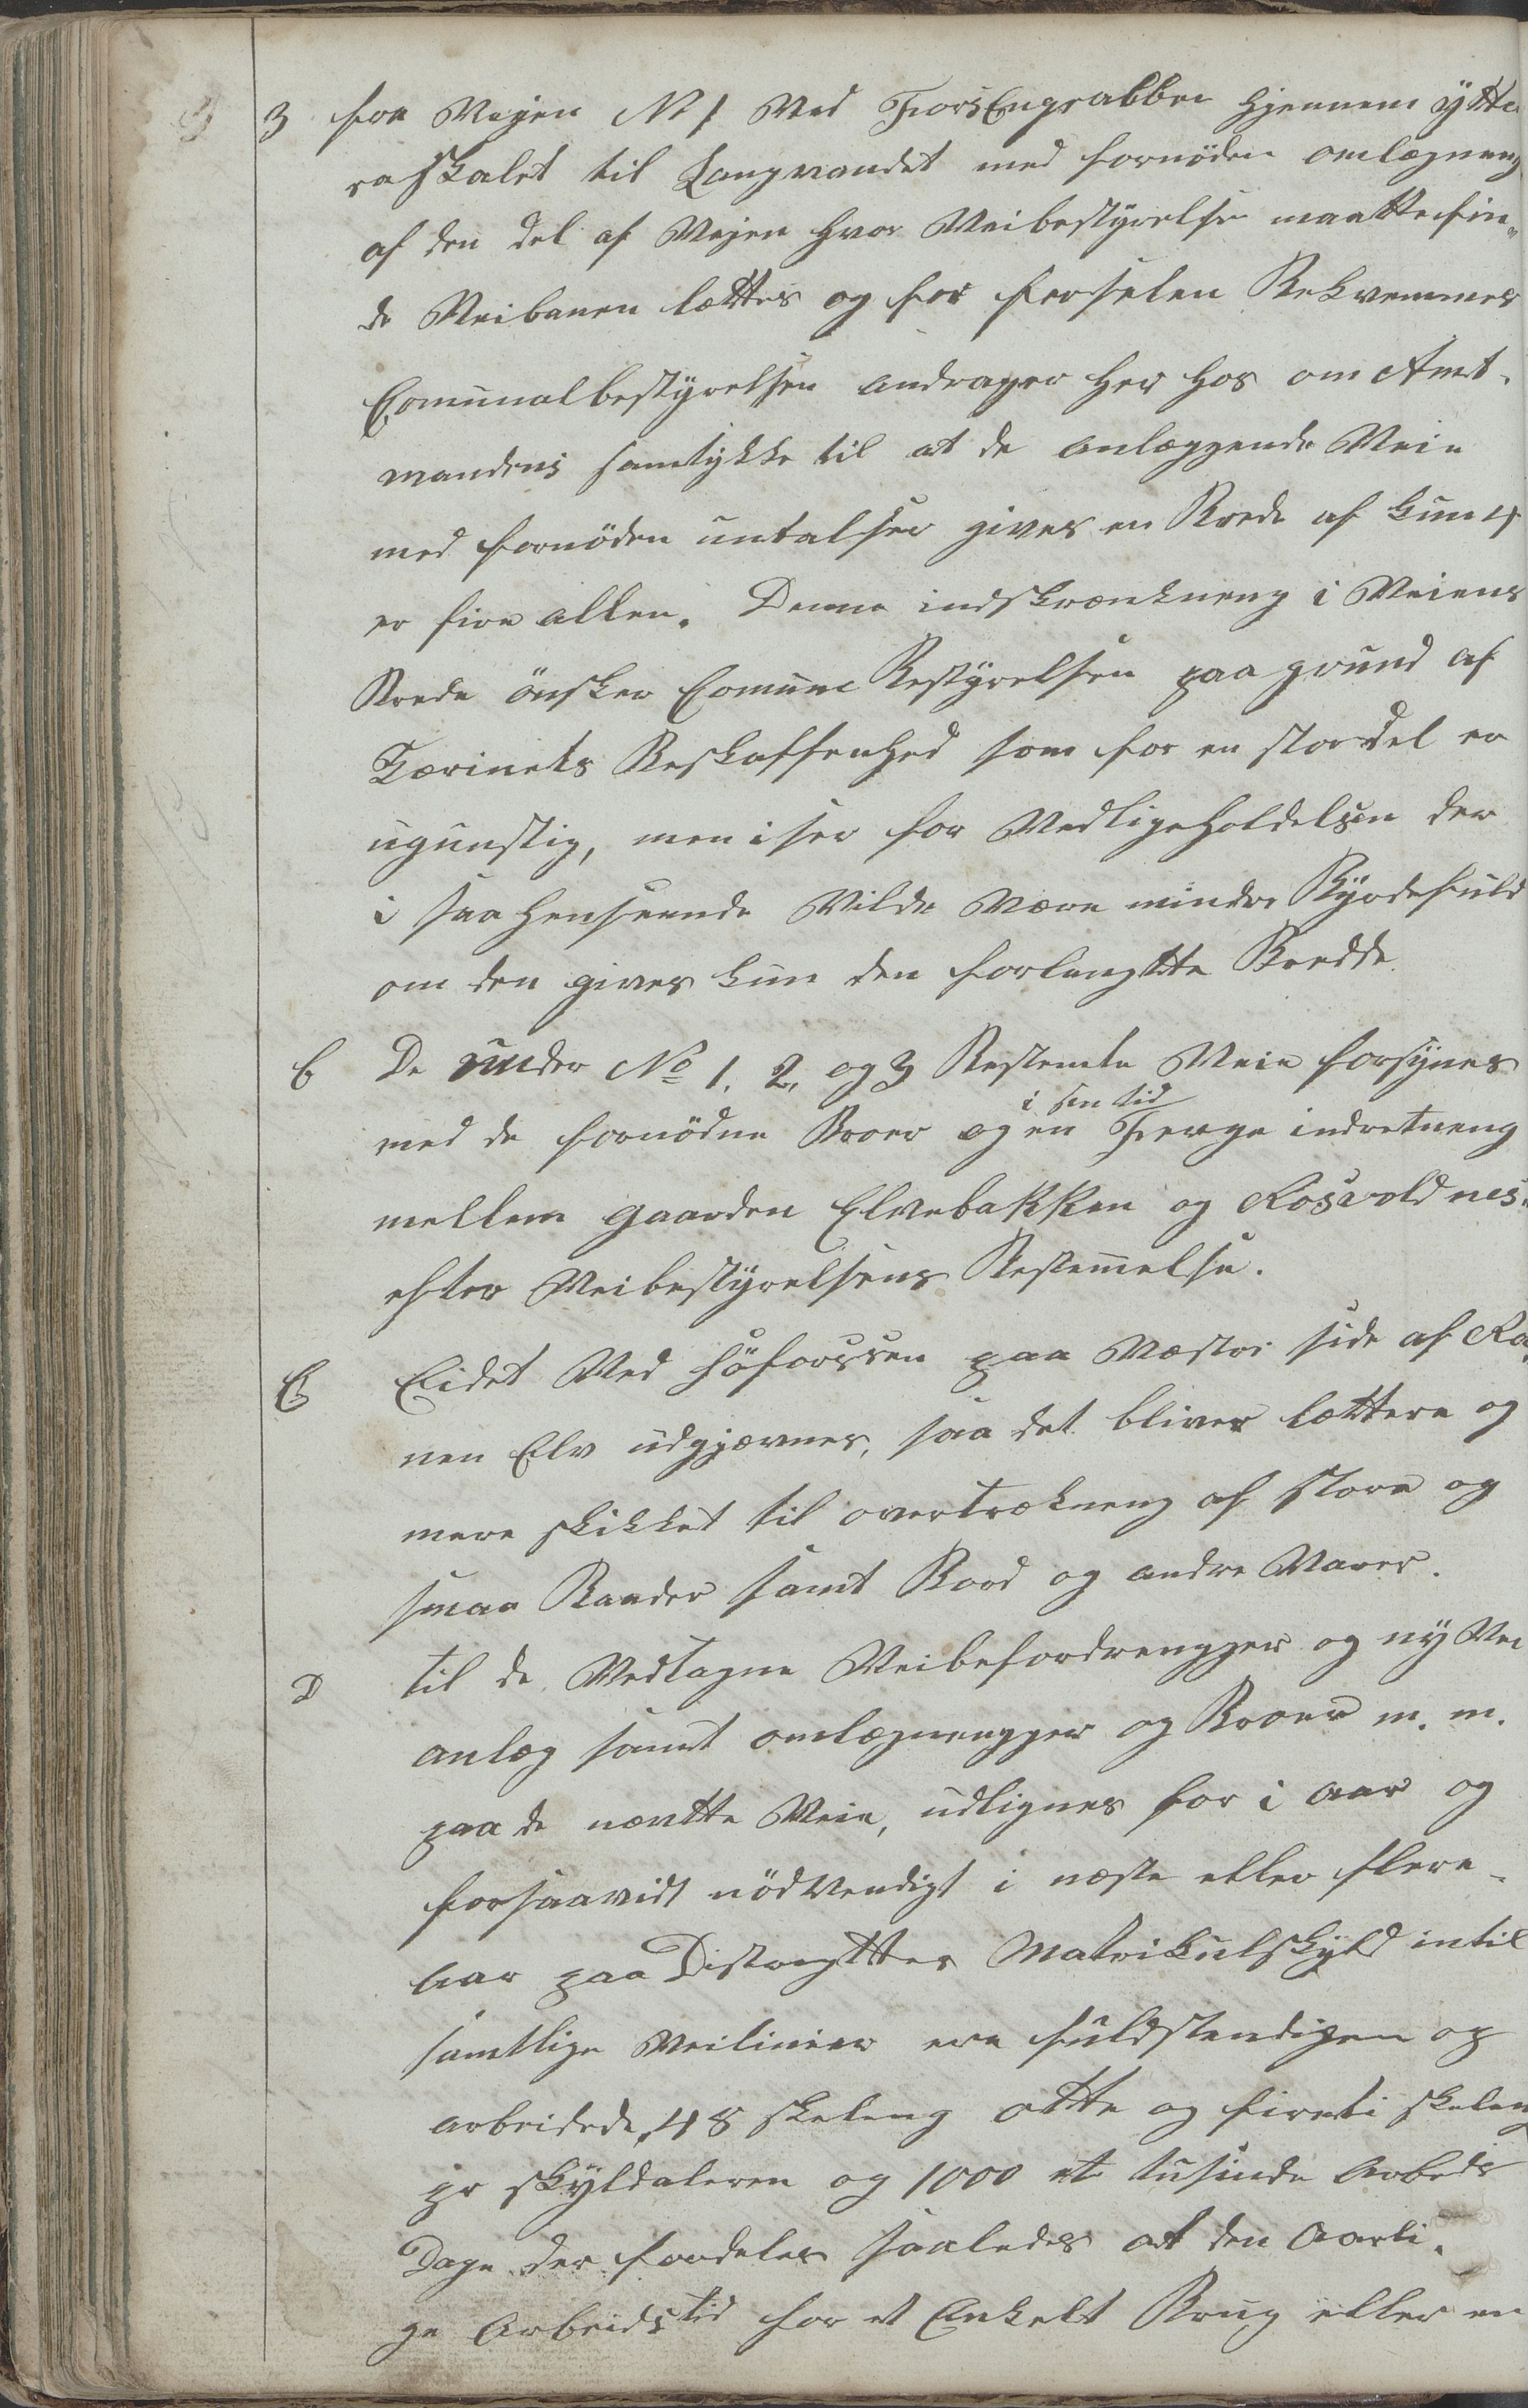 3 fra Vejen No 1 Ved ForsEngrabben gjennem ytte
raskalet til Langvandet med fornöden omlægneng
af den del af Vejen hvor Veibestyrelse maatte fin„
de Veibanen lættes og for ferselen Bekvemmes
Comunalbestyrelsen andrager her hos om Amt„
mandens samtykke til at de anlæggende Veie
med fornöden untalser gives en Brede af kun 4
er fire allen. Denne indskrænkneng i Veiens
Brede önsker Comune Bestyrelsen paa grund af
Tærinets Beskaffenhed som for en stor del er
ugunstig, men iser for Vedligeholdelsen der
i saa henseende Vilde Være mindre Byrdefuld
om den gives kun den forlangtte Bredde.
b De under No 1. 2, og 3 Bestemte Veie forsynes
i sin tid
med de fornödne Broer og en Ferge indretneng
mellem gaarden Elvebakken og Rosvoldnes„
efter Veibestyrelsens Bestemelse.
C Eidet Ved höforssen paa Væstre side af Ra„
nen Elv udgjævnes, saa det bliver lættere og
mere skikket til overtrækneng af store og
smaa Baader samt Bord og andre Varer.
D til de Vedtagne Veibefordrengger og ny Vei
anlæg samt omlægnengger og Broer m. m.
paa de nævntte Veie, udlignes for i aar og
forsaavidt nödvendigt i næste eller flere„
aar paa Districttes Matrikulskyld intil
samtlige Veilinier ere fuldstendigen op
arbeidede, 48 skeleng otte og firrti skeleng
pr skyldaleren og 1000 et tusinde Arbeds
Dage der fordeles saaledes at den Aarli„
ge Arbeidstid for et Enkelt Brug eller en